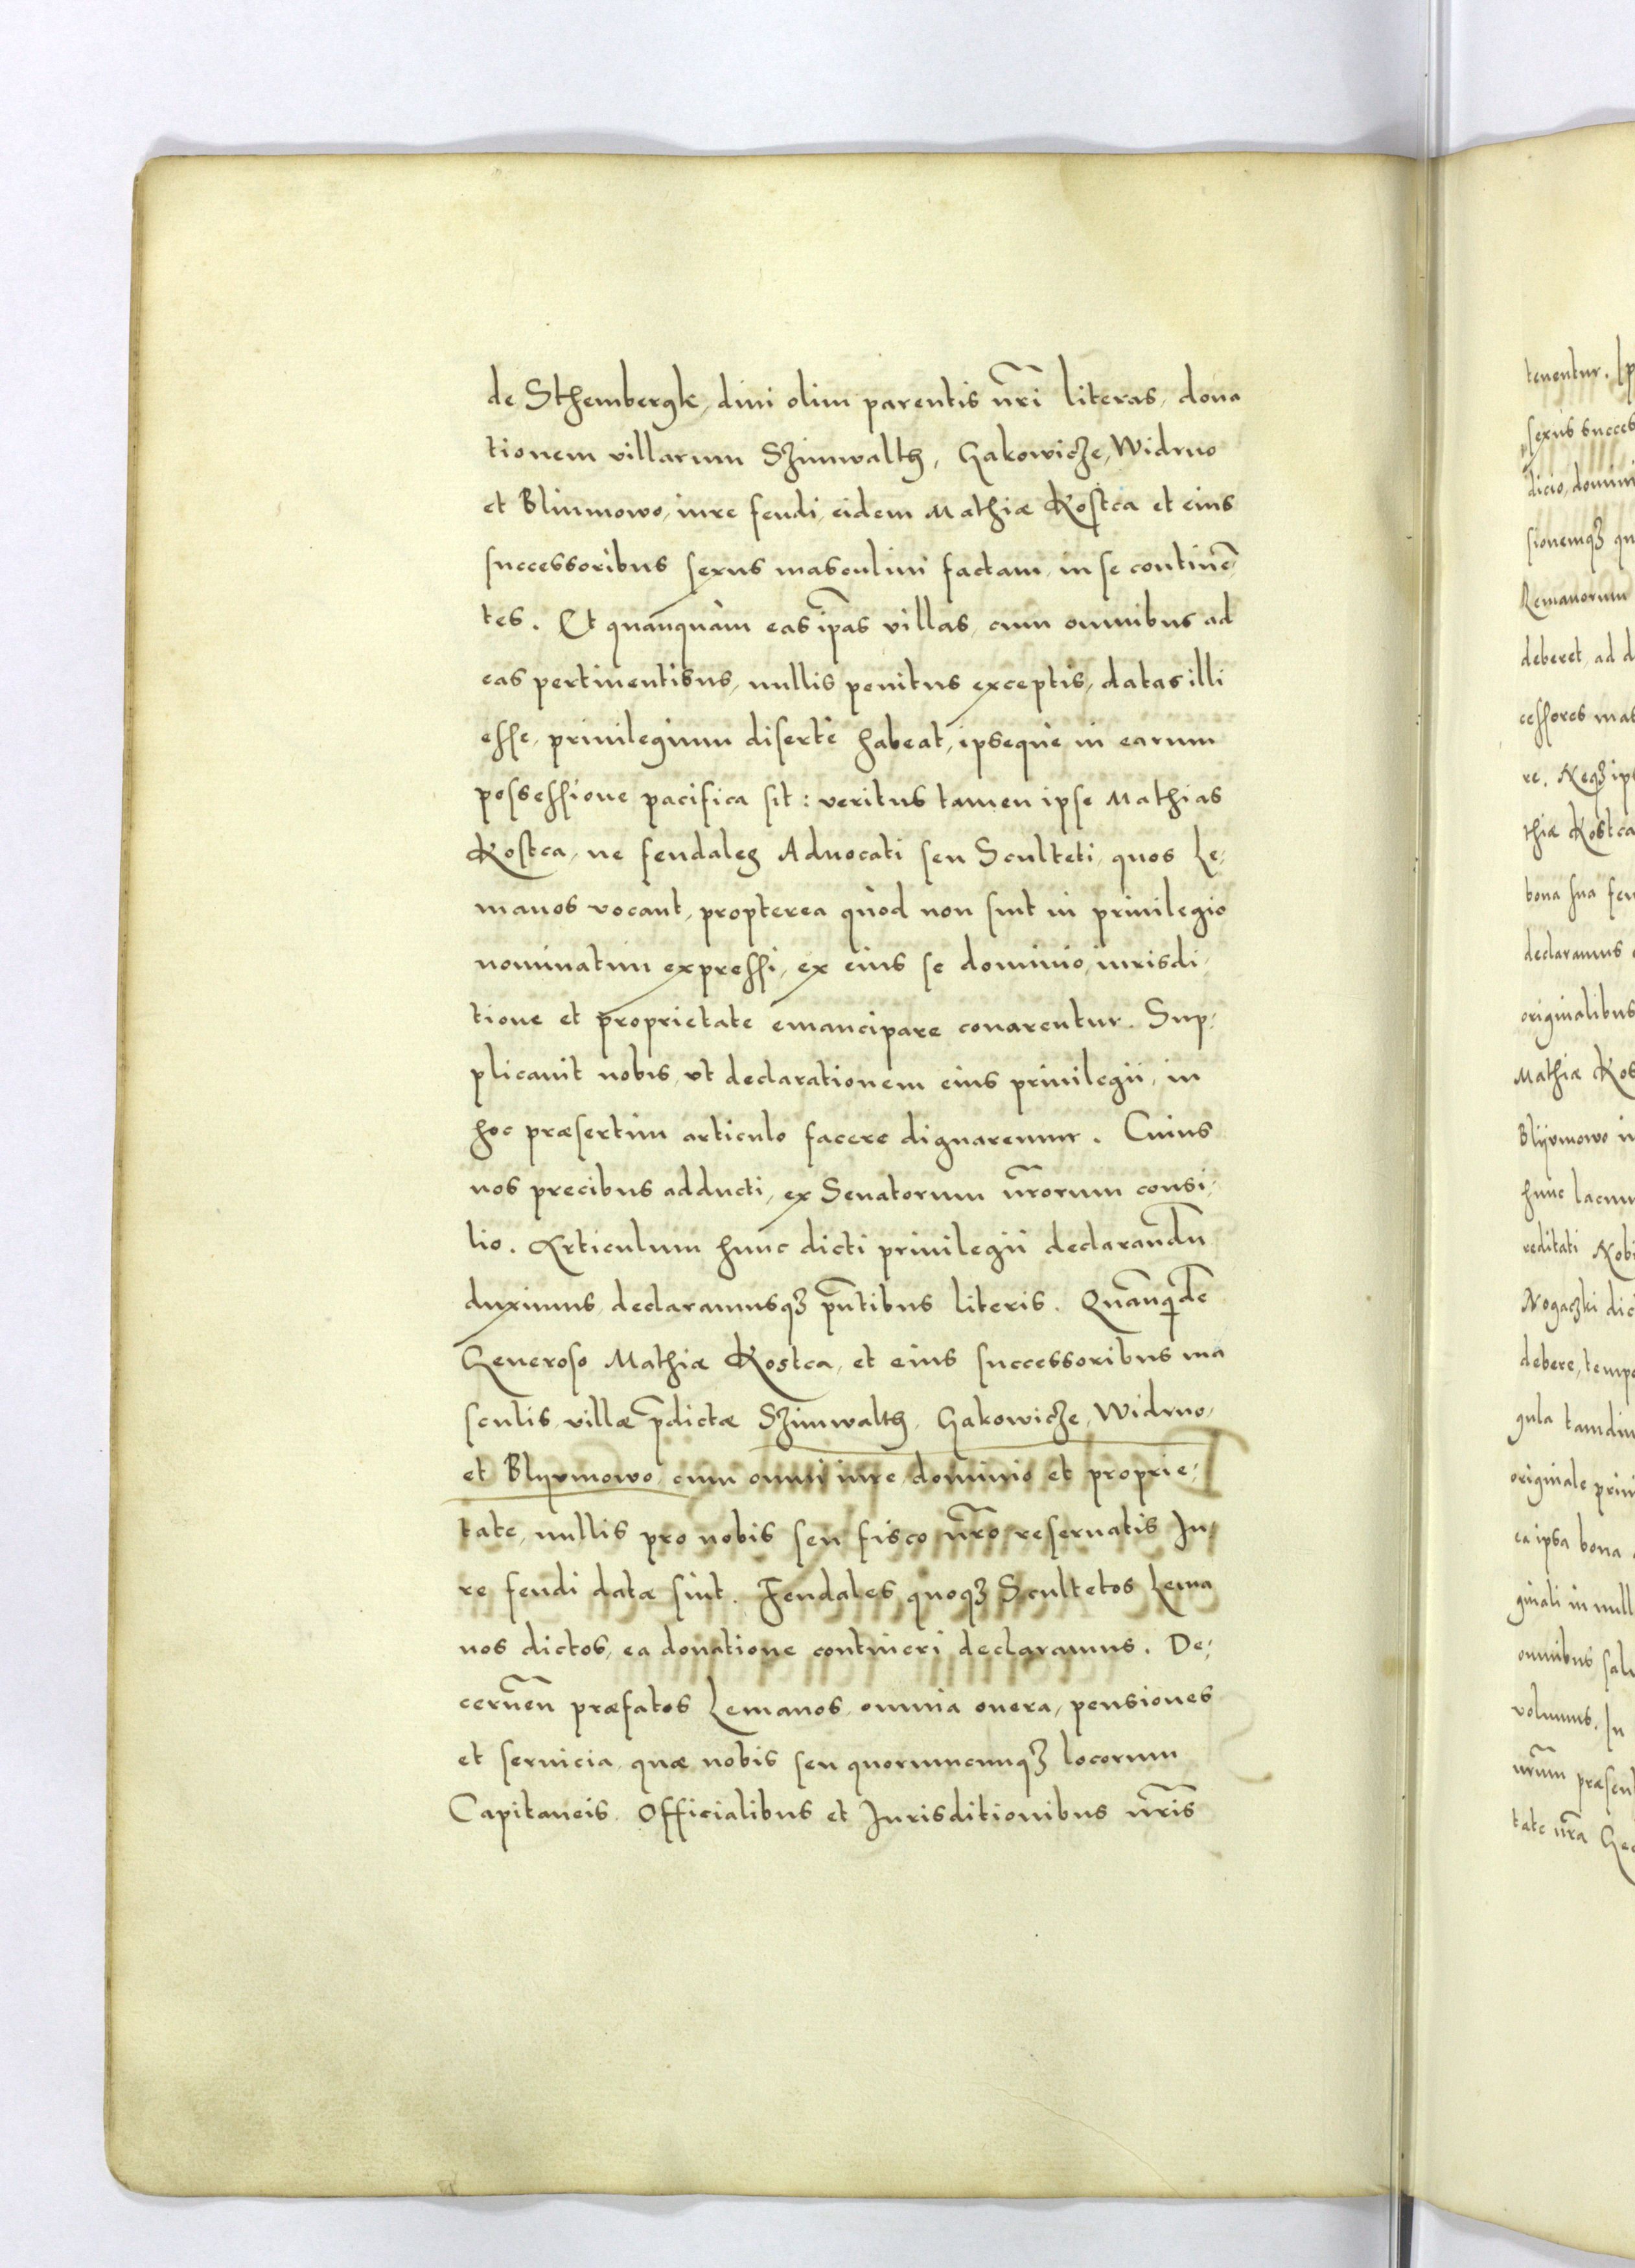 de Sthembergk, diui olim parentis nr̃i literas, dona
tionem villarum Szimwalth, Gakowicze, Widrno
et Blinmowo, iure feudi, eidem Mathiæ Kostca et eius
successoribus sexus masculini factam, in se continẽ
tes. Et quanquàm eas ip̃as villas, cum omnibus ad
eas pertinentibus, nullis penitus exceptis, datas illi
esse, priuilegium disertè habeat, ipseque in earum
possessione pacifica sit: veritus tamen ipse Mathias
Kostca, ne feudales Aduocati seu Sculteti, quos Le,
manos vocant, propterea quòd non sint in priuilegio
nominatim expressi, ex eius se dominio, iurisdi,
tione et proprietate emancipare conarentur. Sup,
plicauit nobis, vt declarationem eius priuilegii, in
hoc præsertim articulo facere dignaremur. Cuius
nos precibus adducti, ex Senatorum nr̃orum consi,
lio. Articulum hunc dicti priuilegii declarand̃u
duximus, declaramusqꝫ pñtibus literis. Quanq̃dẽ
Generoso Mathiæ Kostca, et eius successoribus ma
sculis, villæ p̃dictæ Szimwalth, Gakowicze, Widrno,
et Blyvmowo, cum omni iure, dominio et proprie,
tate, nullis pro nobis seu fisco nr̃o reseruatis Iu,
re feudi datæ sint. Feudales quoqꝫ Scultetos Lema
nos dictos, ea donatione contineri declaramus. De,
cerneñ præfatos Lemanos, omnia onera, pensiones
et seruicia, quæ nobis seu quorumcunqꝫ locorum
Capitaneis, Officialibus et Iurisditionibus nr̃is
tenentur.
sexus succes
dicio, domini
sionemqꝫ qu
Lemanorum
deberet, ad d
cessores mas
re. Neqꝫ ips
thiæ Kostca
bona sua feu
declaramus
originalibus
Mathiæ Kos
Blyvmowo
hunc lacum
reditati Nobi
Nogaczki dic
debere, tempo
gula tamdiu
originale priui
ea ipsa bona
ginali in null
omnibus salu
volumus. In
nr̃um præsent
tate nr̃a Ge